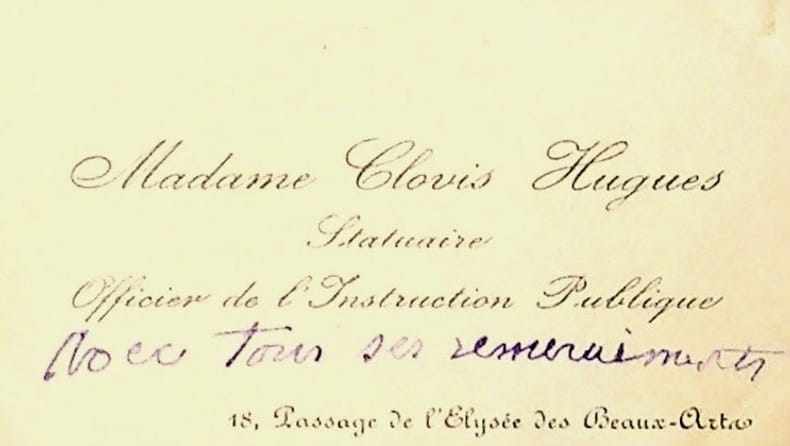 Madame Clovis Hugues
Statuaire
Officier de l'Instruction Publique
Avec tous ses remerciements
18, Passage de l'Elysée des Beaux-Arts